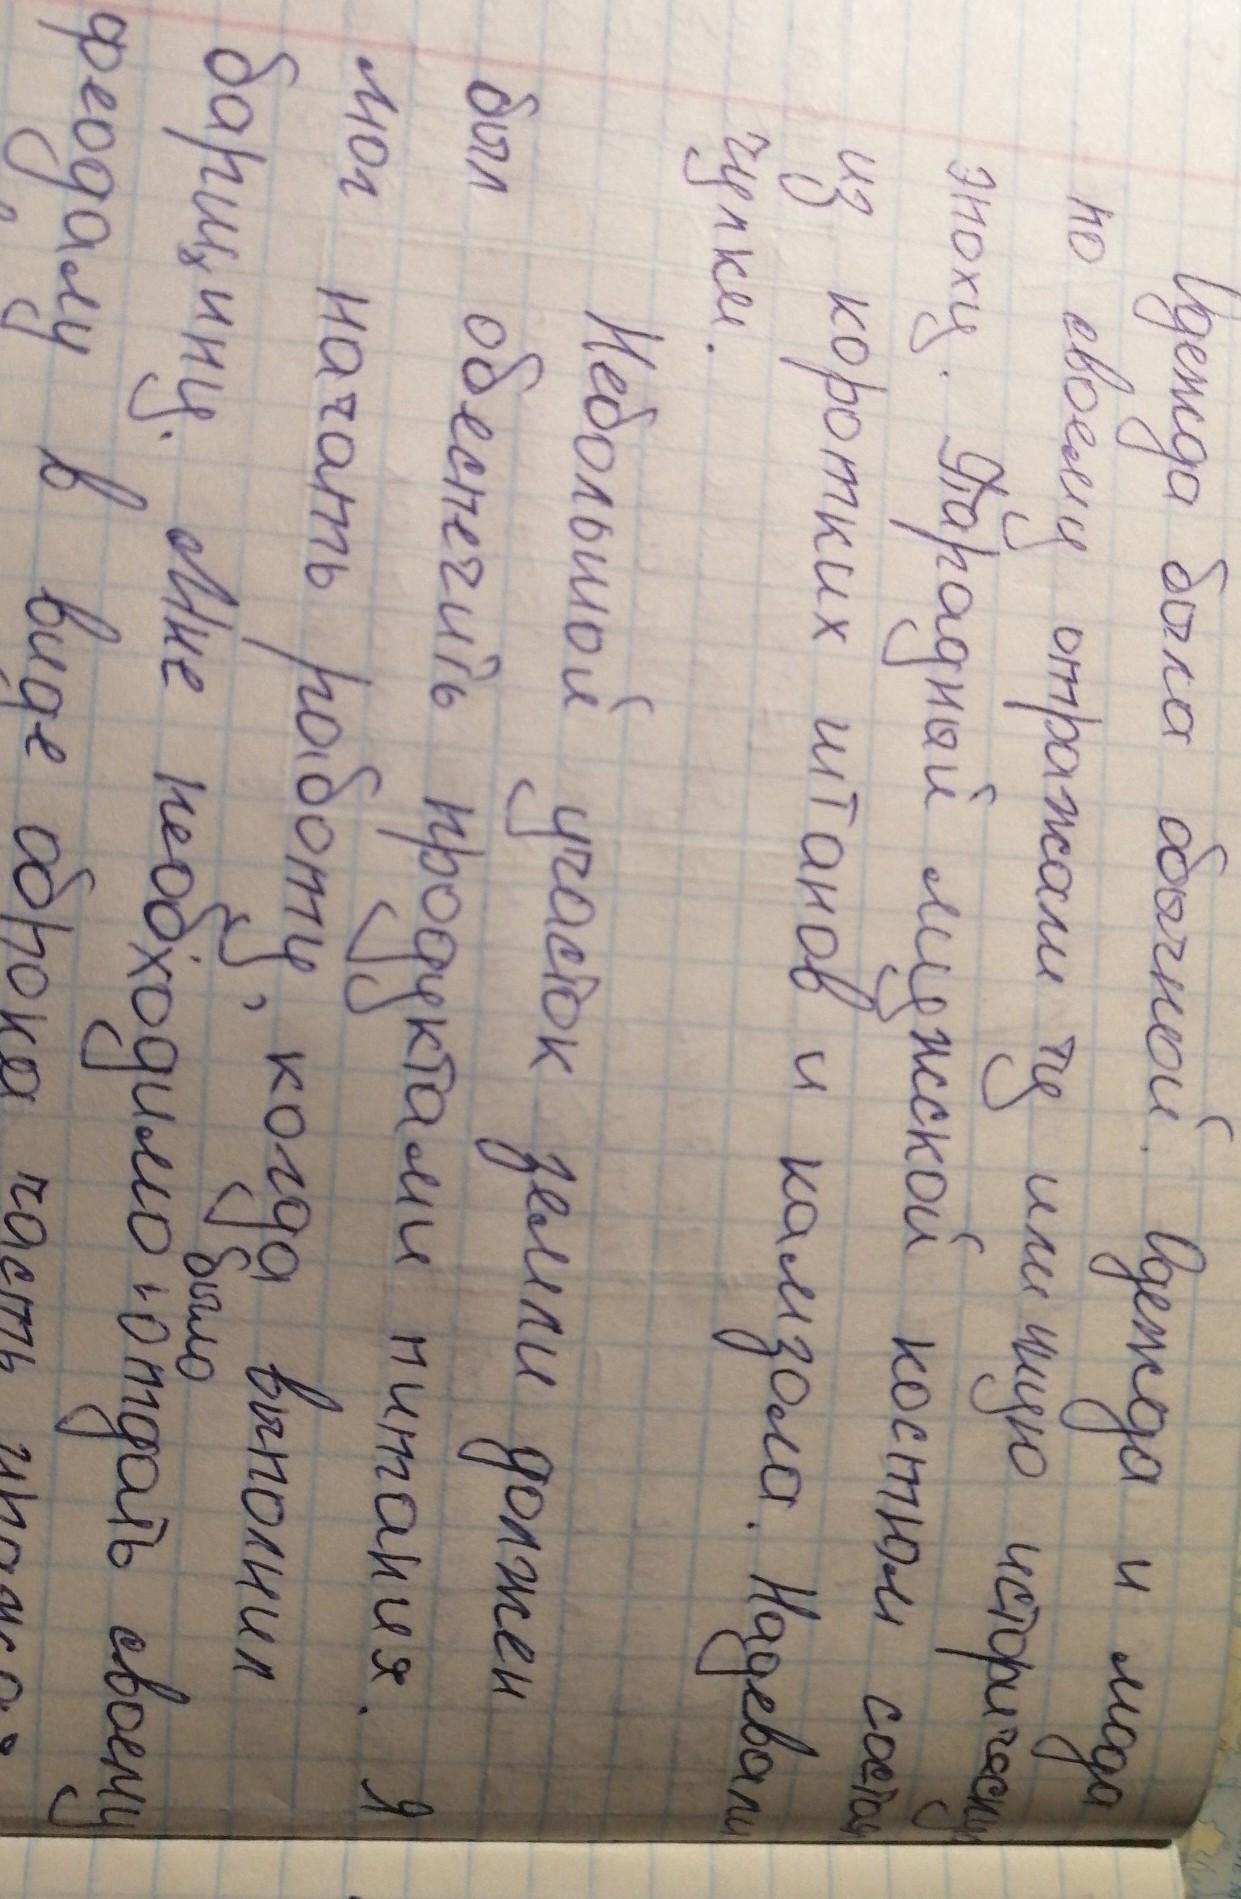 Одежда была обычной. Одежда и мода
по своему отражали ту или иную историческую
эпоху. Парадный мужской костюм состоял
из коротких штанов и камзола. Надевали
чулки.
Небольшой участок земли должен
был обеспечить продуктами питания. Я
мог начать работу, когда выполнил
барщину. Мне необходимо было отдать своему
феодалу в виде оброка часть